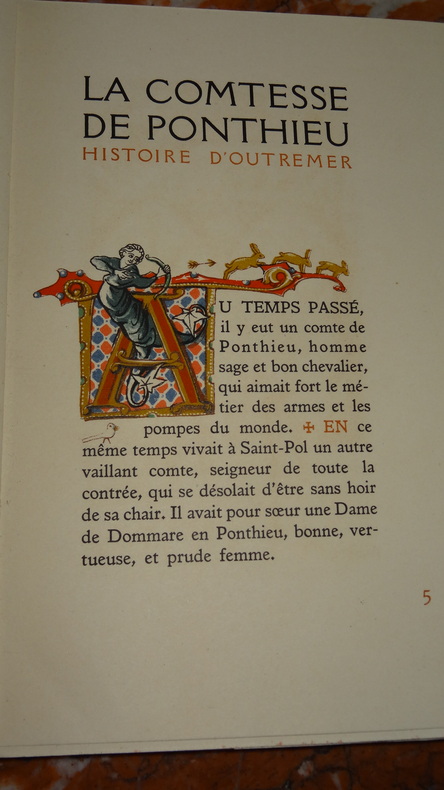 LA COMTESSE
DE PONTHIEU
HISTOIRE D'OUTREMER
AU TEMPS PASSÉ,
il y eut un comte de
Ponthieu, homme
sage et bon chevalier,
qui aimait fort le mé-
tier des armes et les
pompes du monde. ✠ EN ce
même temps vivait à Saint-Pol un autre
vaillant comte, seigneur de toute la
contrée, qui se désolait d'être sans hoir
de sa chair. Il avait pour sœur une Dame
de Dommare en Ponthieu, bonne, ver-
tueuse, et prude femme.
5